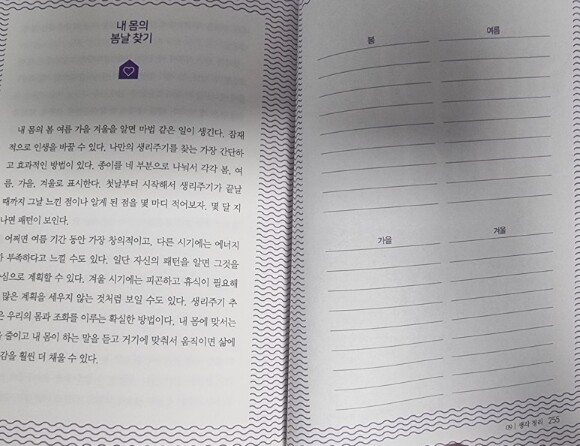 내 몸의
봄날 찾기
내 몸의 봄 여름 가을 겨울을 알면 마법 같은 일이 생긴다. 잠재
적으로 인생을 바꿀 수 있다. 나만의 생리주기를 찾는 가장 간단하
고 효과적인 방법이 있다. 종이를 네 부분으로 나눠서 각각 봄, 여
름, 가을, 겨울로 표시한다. 첫날부터 시작해서 생리주기가 끝날
때까지 그날 느낀 점이나 알게 된 점을 몇 마디 적어보자. 몇 달 지
나면 패턴이 보인다.
어쩌면 여름 기간 동안 가장 창의적이고, 다른 시기에는 에너지
부족하다고 느낄 수도 있다. 일단 자신의 패턴을 알면 그것을
심으로 계획할 수 있다. 겨울 시기에는 피곤하고 휴식이 필요해
많은 계획을 세우지 않는 것처럼 보일 수도 있다. 생리주기 추
은 우리의 몸과 조화를 이루는 확실한 방법이다. 내 몸에 맞서는
줄이고 내 몸이 하는 말을 듣고 거기에 맞춰서 움직이면 삶에
감을 훨씬 더 채울 수 있다.
봄
여름
가을
겨울
09 | 생각 정리 255